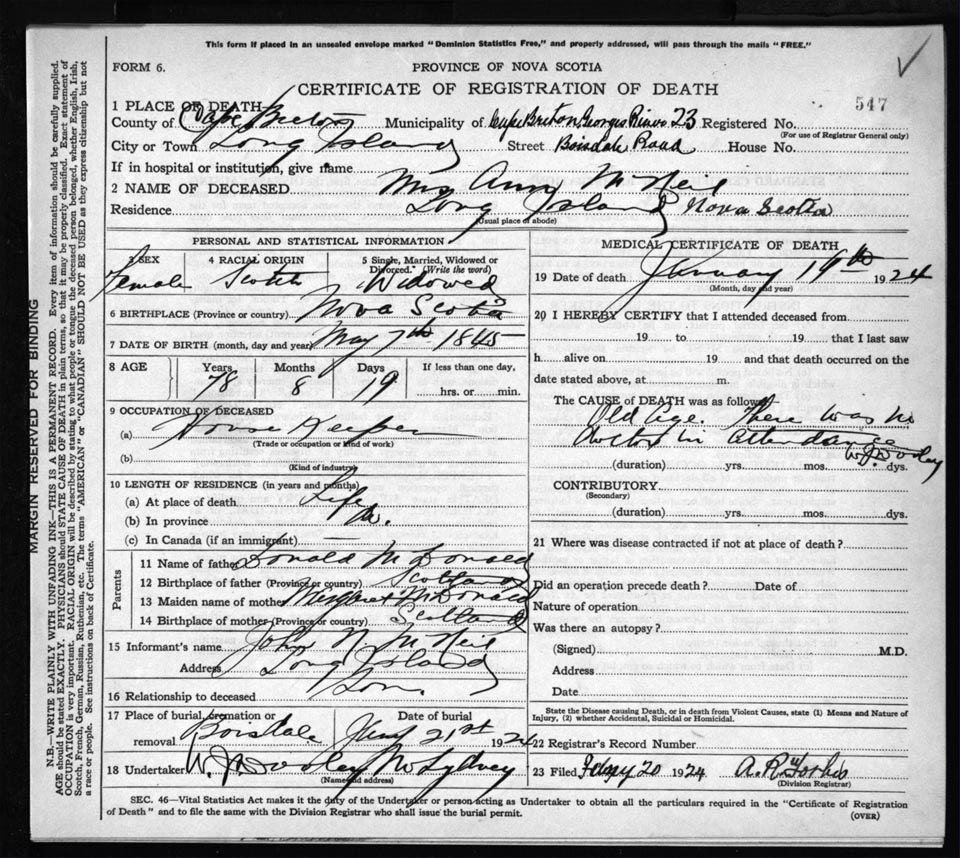 This form if placed in an unsealed envelope marked "Dominion Statistics Free," and properly addressed, will pass through the mails "FREE."
FORM 6. PROVINCE OF NOVA SCOTIA
CERTIFICATE OF REGISTRATION OF DEATH
547
1 PLACE OF DEATH
County of Cape Breton Municipality of Cape Breton Georges River 23 Registered No.
(For use of Registrar General only)
City or Town Long Island Street Boisdale Road House No.
If in hospital or institution, give name
2 NAME OF DECEASED Mrs Ann McNeil
Residence Long Island Nova Scotia
(Usual place of abode)
PERSONAL AND STATISTICAL INFORMATION
3 SEX 4 RACIAL ORIGIN 5 Single, Married, Widowed or Divorced. (Write the word)
Female Scotch Widowed
6 BIRTHPLACE (Province or country) Nova Scotia
7 DATE OF BIRTH (month, day and year) May 7th 1845
8 AGE Years Months Days If less than one day,
78 8 19 hrs. or min.
9 OCCUPATION OF DECEASED
(a) House Keeper
(Trade or occupation or kind of work)
(b)
(Kind of industry)
10 LENGTH OF RESIDENCE (in years and months)
(a) At place of death Life
(b) In province Do.
(c) In Canada (if an immigrant) —
Parents
11 Name of father Donald McDonald
12 Birthplace of father (Province or country) Scotland
13 Maiden name of mother Margaret McDonald
14 Birthplace of mother (Province or country) Scotland
15 Informant's name John N McNeil
Address Long Island
16 Relationship to deceased Son.
17 Place of burial, cremation or removal Boisdale Date of burial Jany 21st 1924
18 Undertaker W. J. Dooley No Sydney
(Name and address)
MEDICAL CERTIFICATE OF DEATH
19 Date of death January 19th 1924
(Month, day and year)
20 I HEREBY CERTIFY that I attended deceased from
19 to 19 that I last saw
h alive on 19 and that death occurred on the
date stated above, at m.
The CAUSE of DEATH was as follows:
Old Age. There was no
Doctor in attendance
W J Dooley
(duration) yrs. mos. dys.
CONTRIBUTORY
(Secondary)
(duration) yrs. mos. dys.
21 Where was disease contracted if not at place of death?
Did an operation precede death? Date of
Nature of operation
Was there an autopsy?
(Signed) M.D.
Address
Date
State the Disease causing Death, or in death from Violent Causes, state (1) Means and Nature of
Injury, (2) whether Accidental, Suicidal or Homicidal.
22 Registrar's Record Number
23 Filed 20 1924 A. R.
(Division Registrar)
SEC. 46—Vital Statistics Act makes it the duty of the Undertaker or person acting as Undertaker to obtain all the particulars required in the "Certificate of Registration
of Death" and to file the same with the Division Registrar who shall issue the burial permit. (OVER)
MARGIN RESERVED FOR BINDING
N.B.—WRITE PLAINLY WITH UNFADING INK—THIS IS A PERMANENT RECORD. Every item of information should be carefully supplied.
AGE should be stated EXACTLY. PHYSICIANS should STATE CAUSE OF DEATH in plain terms, so that it may be properly classified. Exact statement of
OCCUPATION is very important. RACIAL ORIGIN will be described by stating to what people or tongue the deceased person belonged, whether English, Irish,
Scotch, French, German, Russian, Ruthenian, etc. The terms "AMERICAN" or "CANADIAN" SHOULD NOT BE USED as they express citizenship but not
a race or people. See instructions on back of Certificate.